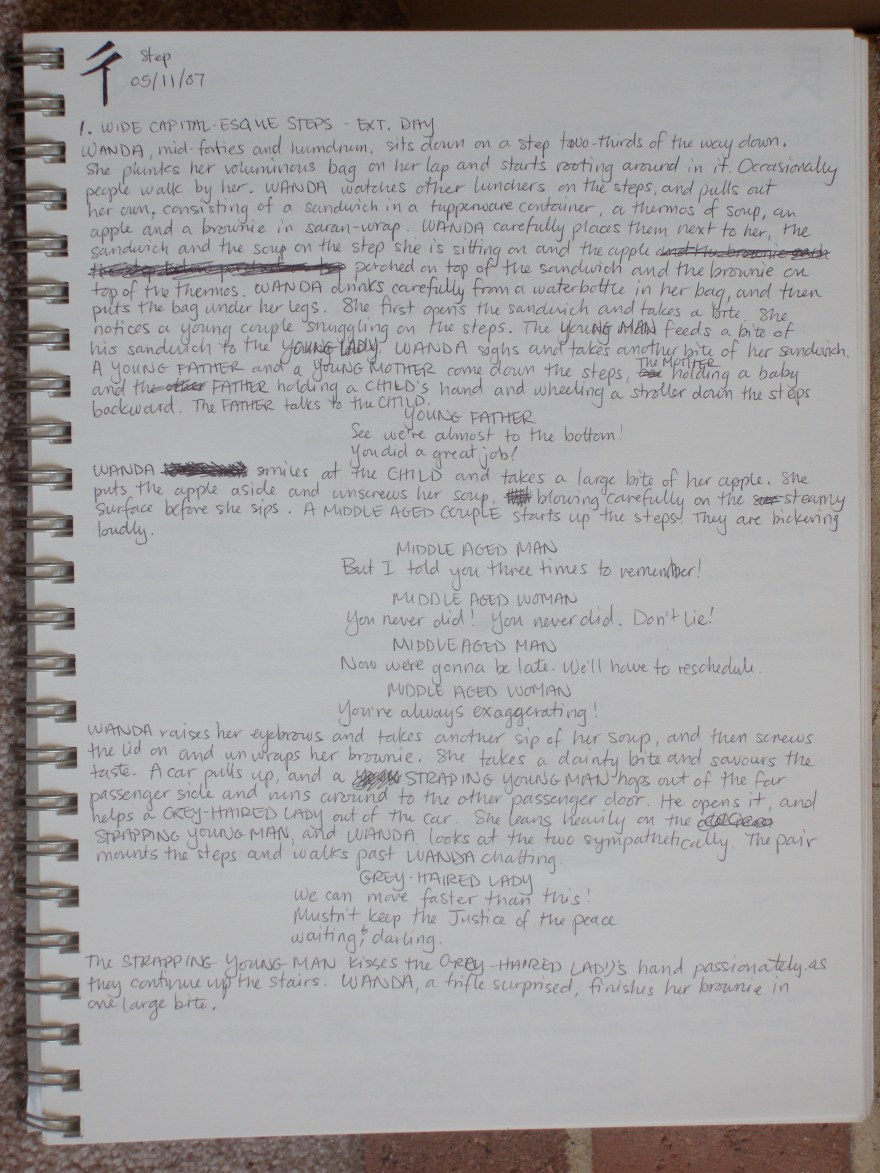 彳 Step
05/11/07
1. WIDE CAPITAL-ESQUE STEPS - EXT. DAY
WANDA, mid-forties and humdrum, sits down on a step two-thirds of the way down.
She plunks her voluminous bag on her lap and starts rooting around in it. Occasionally
people walk by her. WANDA watches other lunchers on the steps, and pulls out
her own, consisting of a sandwich in a tupperware container, a thermos of soup, an
apple and a brownie in saran-wrap. WANDA carefully places them next to her, the
sandwich and the soup on the step she is sitting on and the apple and the brownie each
the step below perched on top of the sandwich and the brownie on
top of the thermos. WANDA drinks carefully from a waterbottle in her bag, and then
puts the bag under her legs. She first opens the sandwich and takes a bite. She
notices a young couple snuggling on the steps. The YOUNG MAN feeds a bite of
his sandwich to the YOUNG LADY. WANDA sighs and takes another bite of her sandwich.
A YOUNG FATHER and a YOUNG MOTHER come down the steps, The MOTHER holding a baby
and the other FATHER holding a CHILD's hand and wheeling a stroller down the steps
backward. The FATHER talks to the CHILD.
YOUNG FATHER
See we're almost to the bottom!
You did a great job!
WANDA smiles at the CHILD and takes a large bite of her apple. She
puts the apple aside and unscrews her soup, blowing carefully on the steamy
surface before she sips. A MIDDLE AGED COUPLE starts up the steps. They are bickering
loudly.
MIDDLE AGED MAN
But I told you three times to remember!
MIDDLE AGED WOMAN
You never did! You never did. Don't lie!
MIDDLE AGED MAN
Now we're gonna be late. We'll have to reschedule.
MIDDLE AGED WOMAN
You're always exaggerating!
WANDA raises her eyebrows and takes another sip of her soup, and then screws
the lid on and unwraps her brownie. She takes a dainty bite and savours the
taste. A car pulls up, and a STRAPING YOUNG MAN hops out of the far
passenger side and runs around to the other passenger door. He opens it, and
helps a GREY-HAIRED LADY out of the car. She leans heavily on the
STRAPPING YOUNG MAN, and WANDA looks at the two sympathetically. The pair
mounts the steps and walks past WANDA chatting.
GREY-HAIRED LADY
We can move faster than this!
Mustn't keep the Justice of the peace
waiting, darling.
The STRAPPING YOUNG MAN kisses the GREY-HAIRED LADY's hand passionately as
they continue up the stairs. WANDA, a trifle surprised, finishes her brownie in
one large bite.